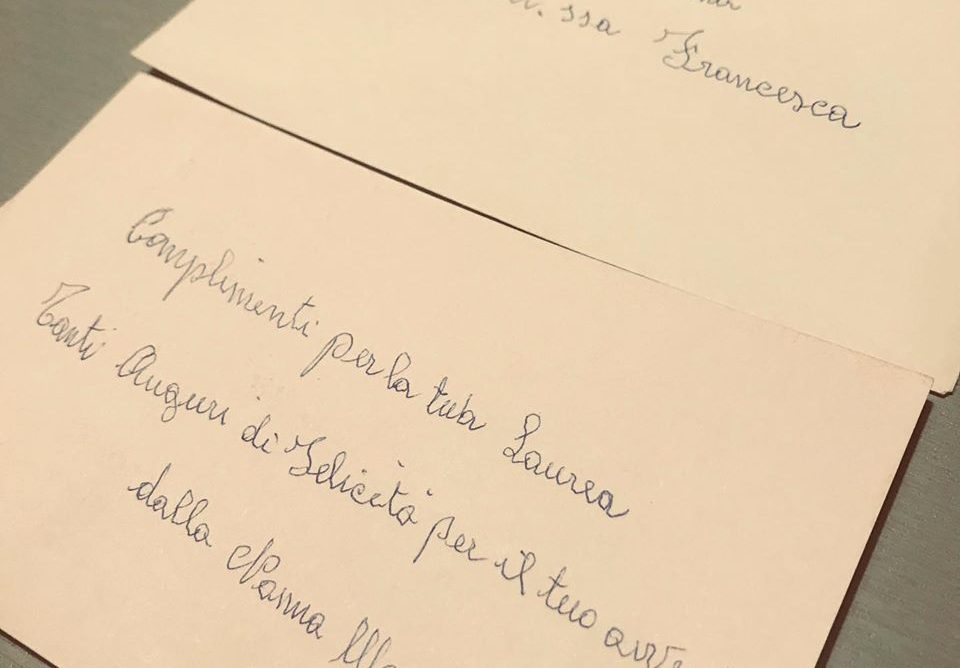 ssa Francesca
Complimenti per la tua Laurea
Tanti Auguri di Felicità per il tuo avve
dalla Nonna